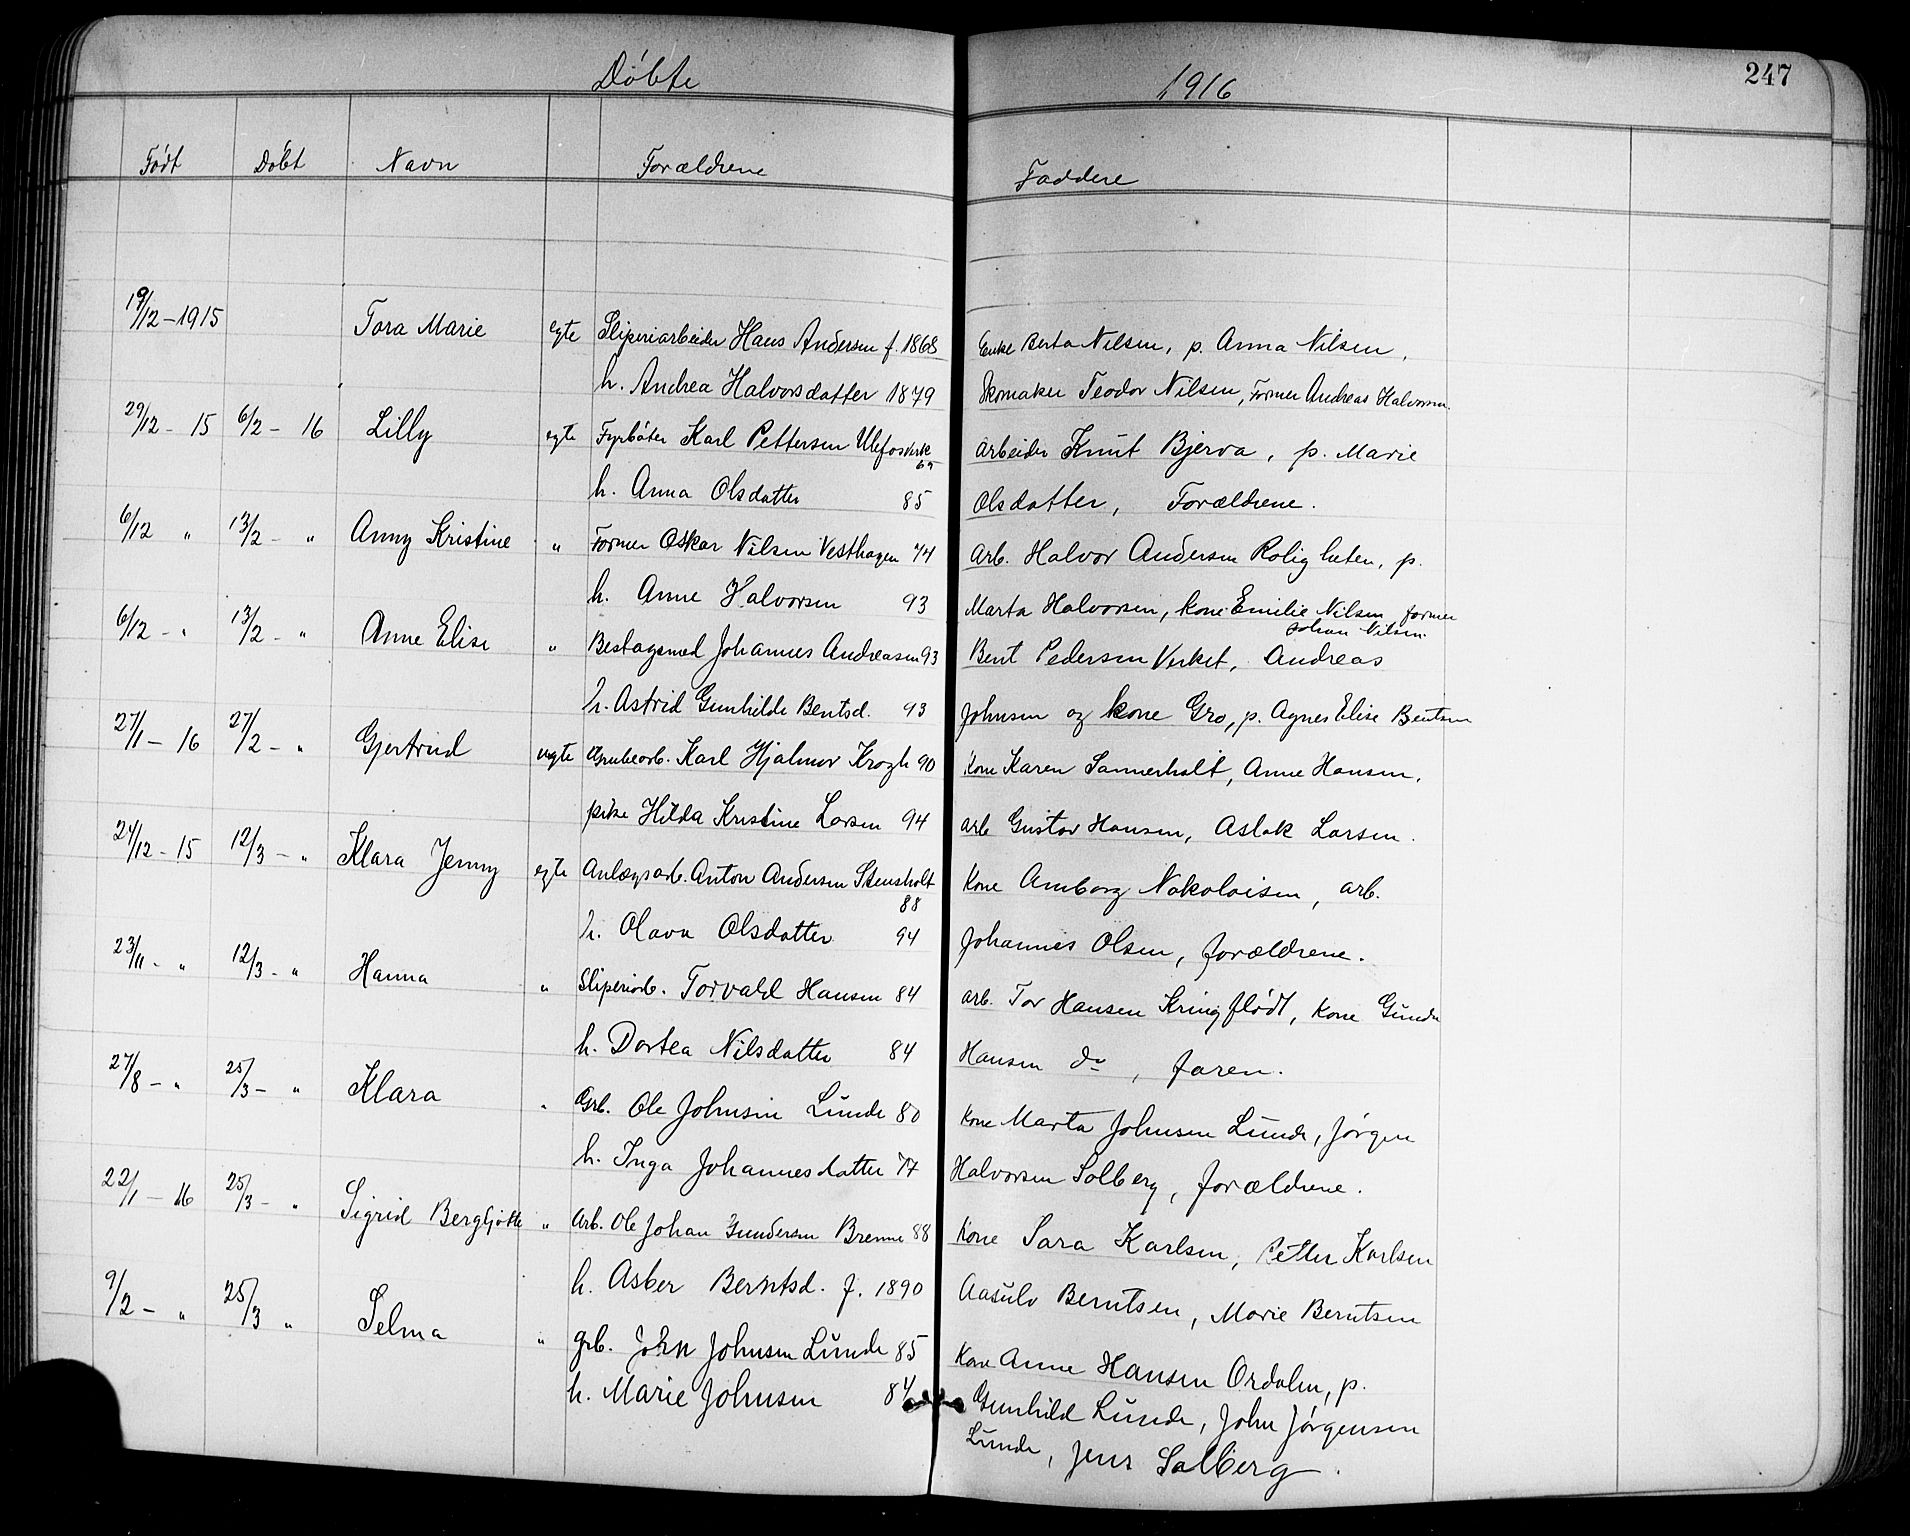 Døbte 1916 247
Født Døbt Navn Forældrene Faddere
19/12 - 1915 Tora Marie egte Sliperiarbeider Hans Andersen f. 1868 Enke Berta Nilsen, p. Anna Nilsen,
h. Andrea Halvorsdatter 1879 Skomaker Teodor Nilsen, Former Andreas Halvorsen.
29/12 - 15 6/2 - 16 Lilly egte Fyrbøter Karl Pettersen Ulefos Verk arbeider Knut Bjerva, p. Marie
69
h. Anna Olsdatter 85 Olsdatter, Forældrene.
6/12 " 13/2 - " Anny Kristine " Former Oskar Nilsen Vesthagen 74 Arb. Halvor Andersen Roligheten, p.
h. Anne Halvorsen 93 Marta Halvorsen, kone Emilie Nilsen former
Johan Nilsen.
6/12 - " 13/2 - " Anne Elise " Johannes Andreasen 93 Bent Pedersen Verket, Andreas
h. Astrid Gunhilde Bentsd. 93 Johnsen og kone Gro, p. Agnes Elise Bentsen
27/1 - 16 27/2 - " Gjertrud uegte Grubearb. Karl Hjalmar Krogh 90 Kone Karen Sannerholt, Anne Hansen,
pike Hilda Kristine Larsen 94 arb Gustav Hansen, Aslak Larsen.
24/12 - 15 12/3 - " Klara Jenny egte Anlægsarb. Anton Andersen Stensholt Kone Amborg Nokolaisen, arb.
88
h. Olava Olsdatter 94 Johannes Olsen, forældrene.
23/11 - " 12/3 - " Hanna " Sliperiarb. Torvald Hansen 84 arb. Tor Hansen Kringflødt, Kone Gunda
h. Dortea Nilsdatter 84 Hansen do, faren.
27/8 - " 25/3 - " Klara " Grb. Ole Johnsen Lunde 80 Kone Marta Johnsen Lunde, Jørgen
h. Inga Johannesdatter 77 Halvorsen Solberg, forældrene.
22/1 - 16 25/3 - " Sigrid Bergljotte " Arb. Ole Johan Gundersen Brenne 88 Kone Sara Karlsen, Petter Karlsen
h. Asber Berntsd. f. 1890 Aasulv Berntsen, Marie Berntsen
9/2 - " 25/3 " Selma " grb. John Johnsen Lunde 85 Kone Anne Hansen Ordalen, p.
h. Marie Johnsen 84 Gunhild Lunde, John Jørgensen
Lunde, Jens Solberg.